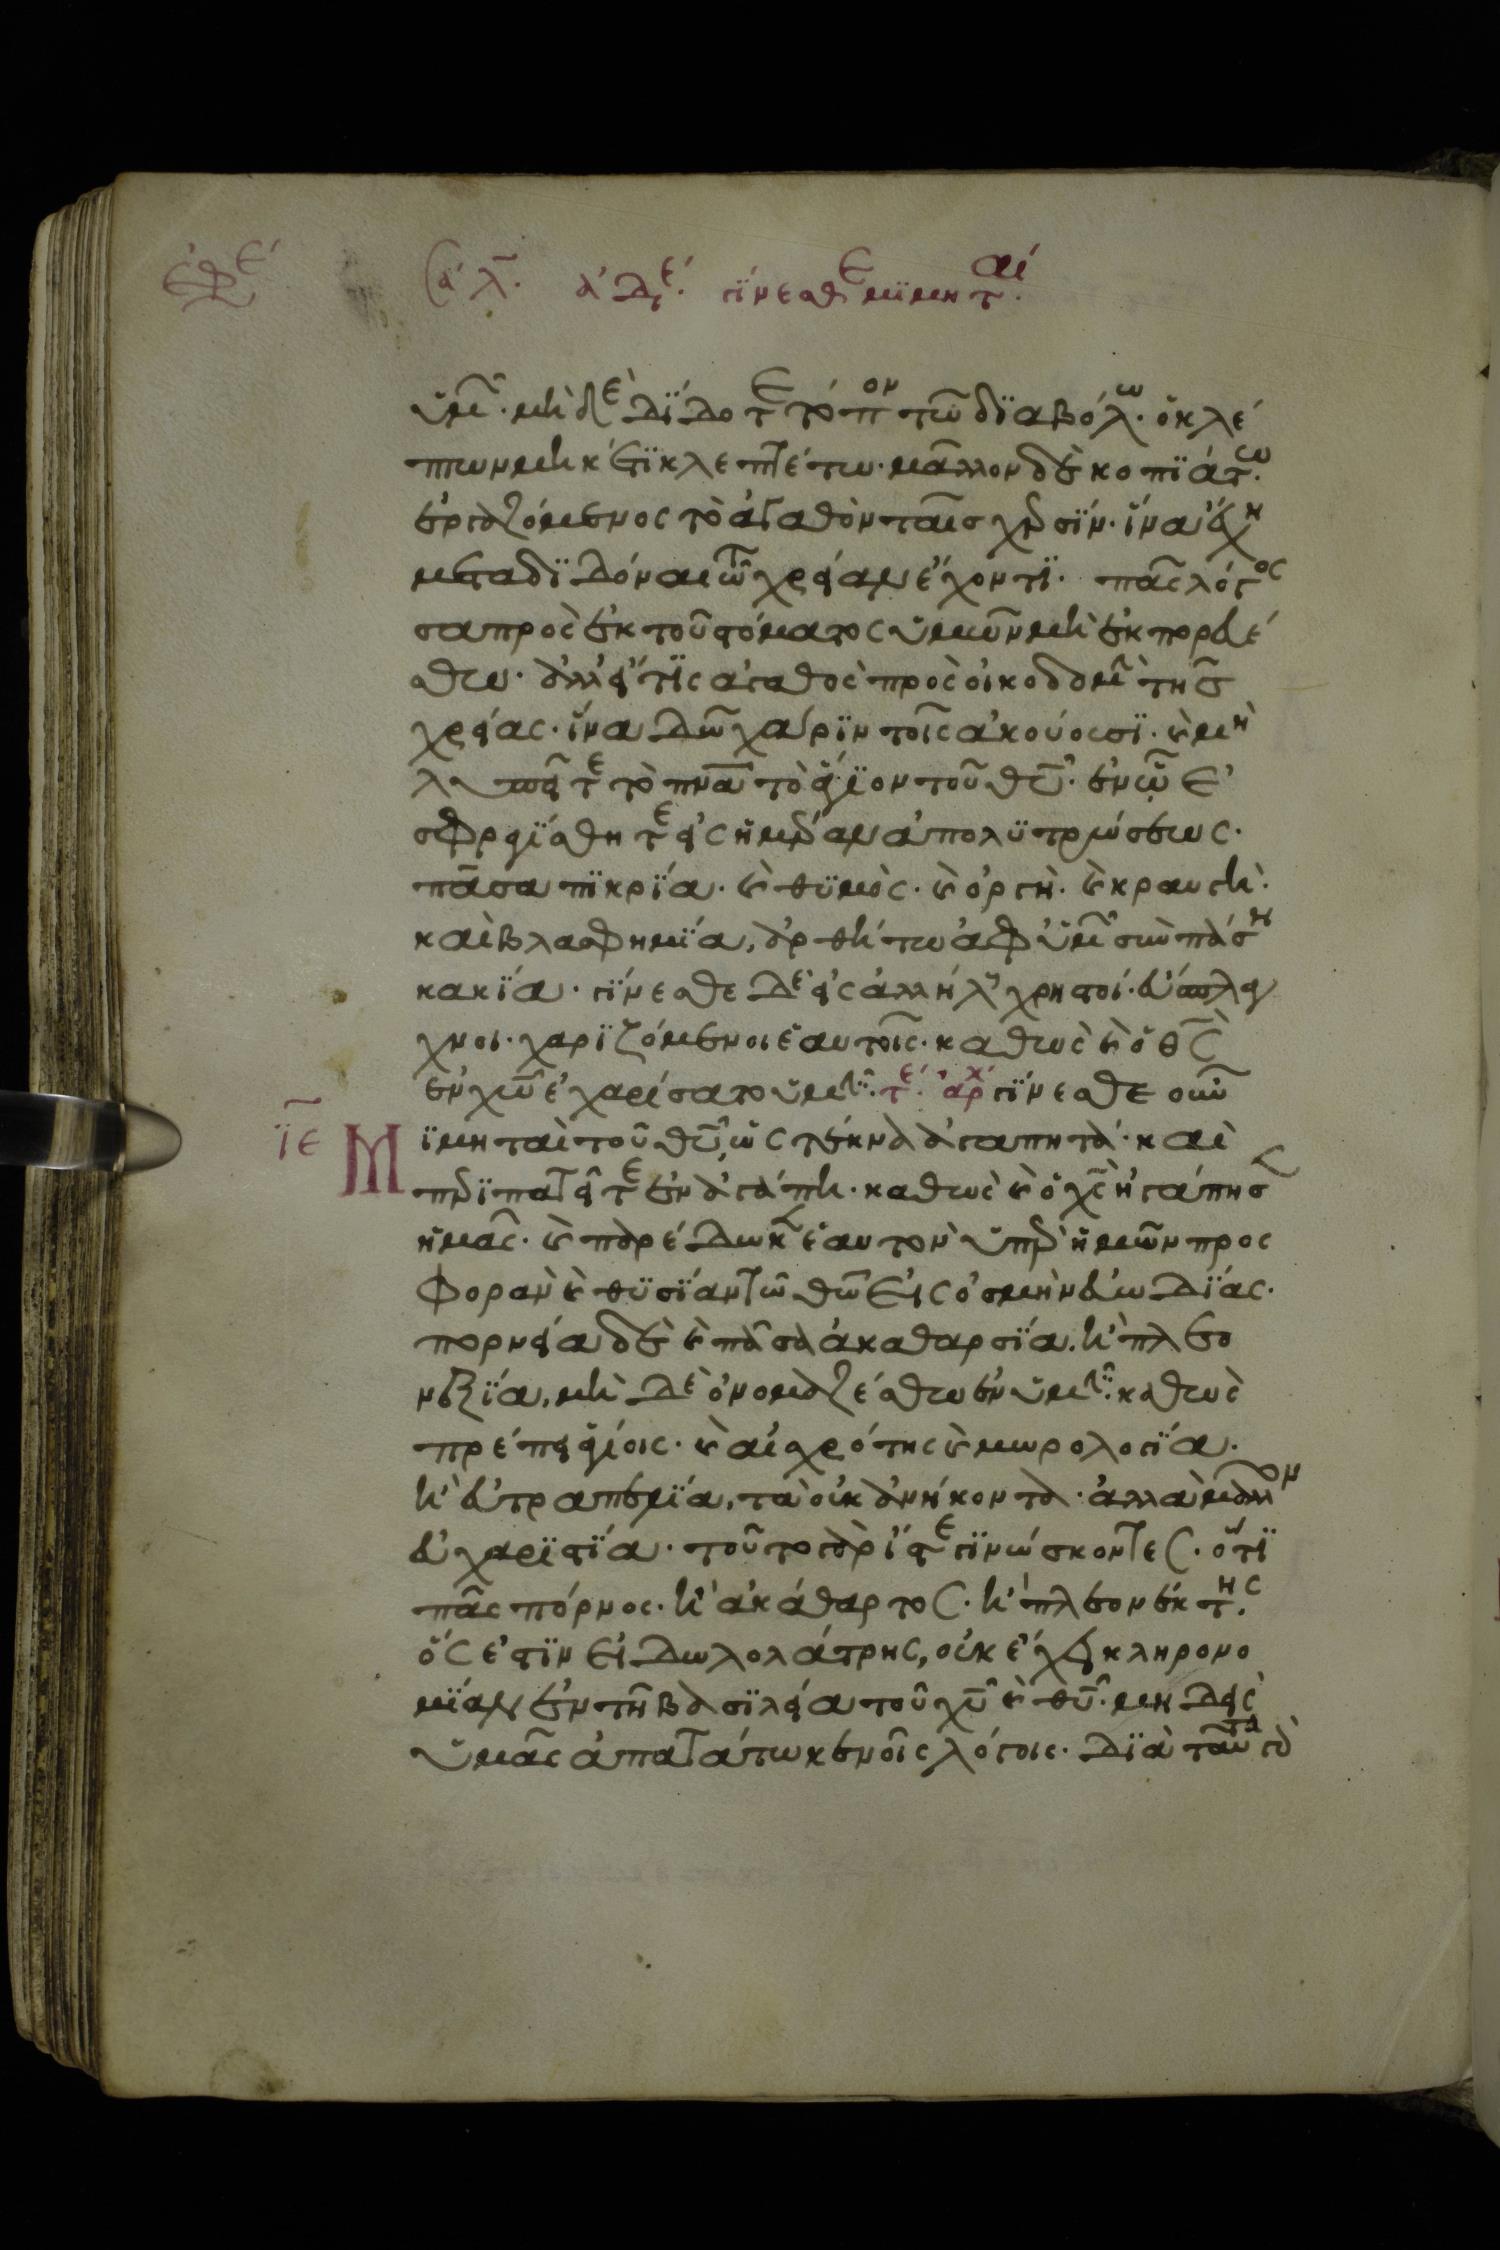 ἀδελφοί. γίνεσθε μιμηταί.
ὑμῶν. μὴ δὲ δίδοτε τόπον τῶ διαβόλω. ὁ κλέ
πτων μηκέτι κλεπτέτω. μᾶλλον δὲ κοπιάτω.
ἐργαζόμενος τὸ ἀγαθὸν ταῖς χερσίν. ἵνα ἔχη
μεταδιδόναι τῶ χρείαν ἔχοντι. πᾶς λόγος
σαπρὸς ἐκ τοῦ στόματος ὑμῶν μὴ ἐκπορευέ
σθω. ἀλλ' εἴ τις ἀγαθὸς πρὸς οἰκοδομὴν τῆς
χρείας. ἵνα δῶ χάριν τοῖς ἀκούουσι. καὶ μὴ
λυπεῖτε τὸ πνα τὸ ἅγιον τοῦ θυ. ἐν ὧ ἐ
σφραγίσθητε εἰς ἡμέραν ἀπολυτρώσεως.
πᾶσα πικρία. καὶ θυμὸς. καὶ ὀργὴ. καὶ κραυγὴ.
καὶ βλασφημία, ἀρθήτω ἀφ' ὑμῶν σὺν πάση
κακία. γίνεσθε δὲ εἰς ἀλλήλους χρηστοί. εὔσπλα
χνοι. χαριζόμενοι ἑαυτοῖς. καθὼς καὶ ὁ θς
ἐν χω ἐχαρίσατο ὑμῖν. τε. ἀρχ γίνεσθε οὖν
ιε Μιμηταὶ τοῦ θυ, ὡς τέκνα ἀγαπητά. καὶ
περιπατεῖτε ἐν ἀγάπη. καθὼς καὶ ὁ χς ἠγάπησ
ἡμᾶς. καὶ παρέδωκεν ἑαυτὸν ὑπὲρ ἡμῶν προς
φορὰν καὶ θυσίαν τῶ θω εἰς ὀσμὴν εὐωδίας.
πορνεία δὲ καὶ πᾶσα ἀκαθαρσία. ἢ πλεο
νεξία, μὴ δὲ ὀνομαζέσθω ἐν ὑμῖν. καθὼς
πρέπει ἁγίοις. καὶ αἰσχρότης καὶ μωρολογία.
ἢ εὐτραπελία, τὰ οὐκ ἀνήκοντα. ἀλλὰ μᾶλλον
εὐχαριστία. τοῦτο γὰρ ἴστε γινώσκοντες. ὅτι
πᾶς πόρνος. ἢ ἀκάθαρτος. ἢ πλεονέκτης,
ὅς ἐστιν εἰδωλολάτρης, οὐκ ἔχει κληρονο
μίαν ἐν τῆ βασιλεία τοῦ χυ καὶ θυ. μηδεὶς
ὑμᾶς ἀπατάτω κενοῖς λόγοις. διὰ ταῦτα γὰ